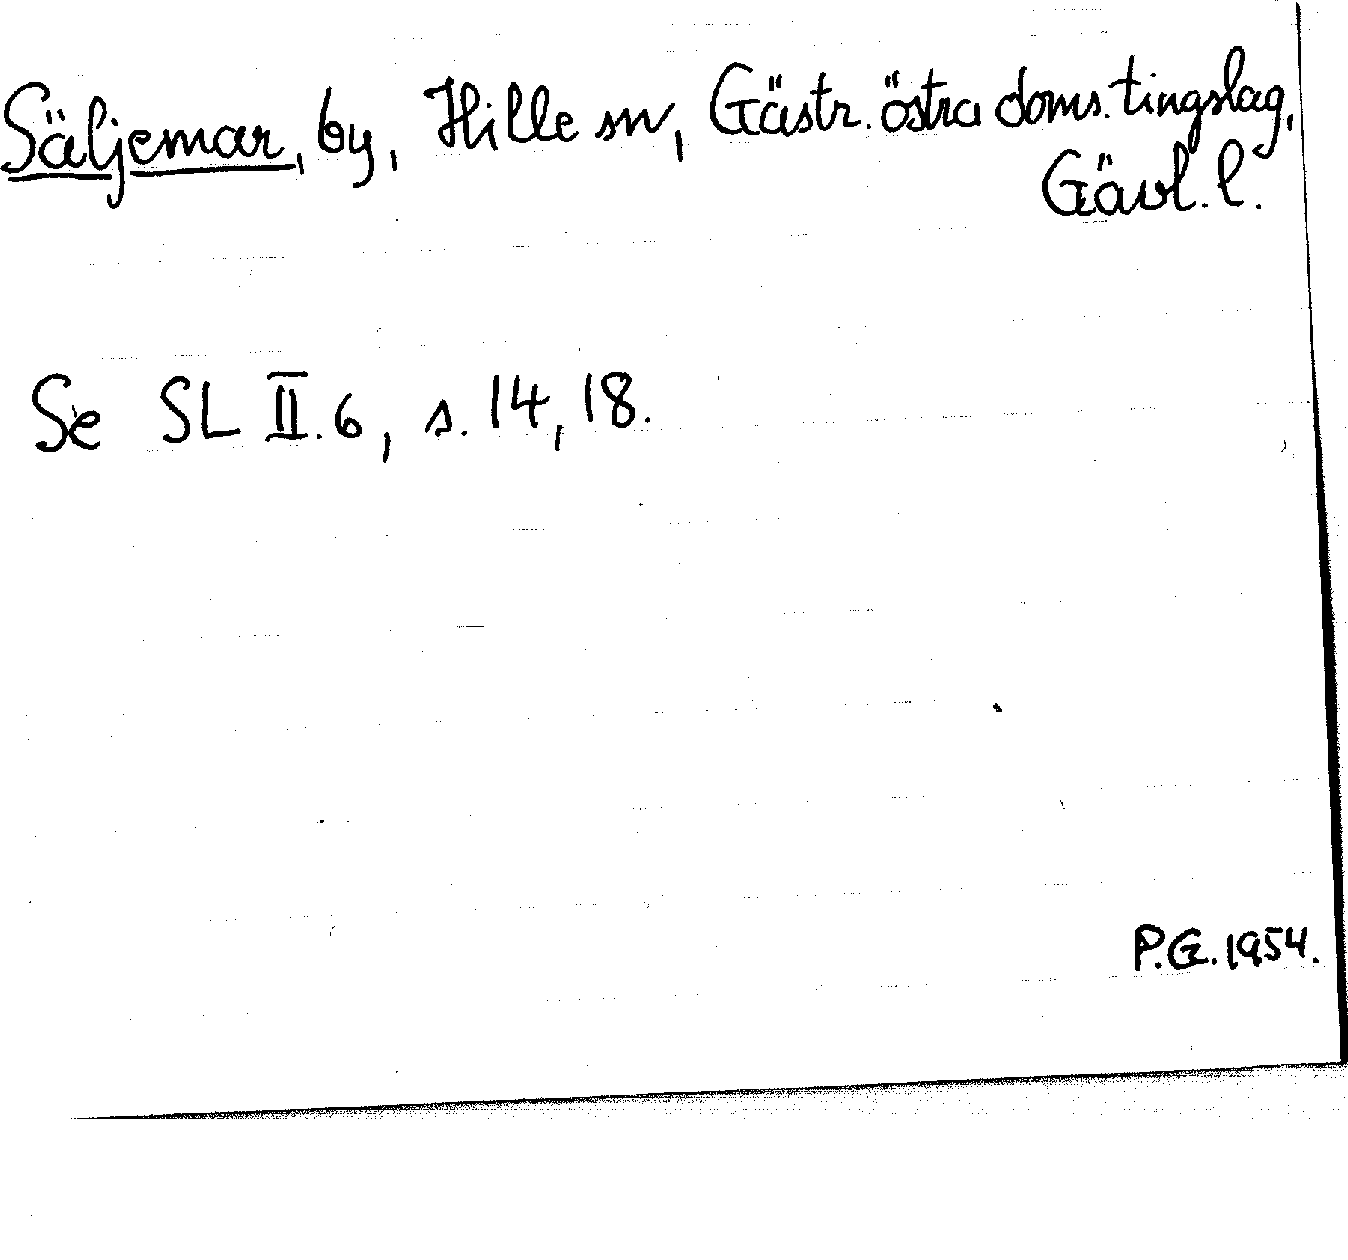 Säljemar, by, Hille sn, Gästr. östra doms. tingslag,
Gävl. l.
Se SL II.6, s. 14, 18.
P.G. 1954.